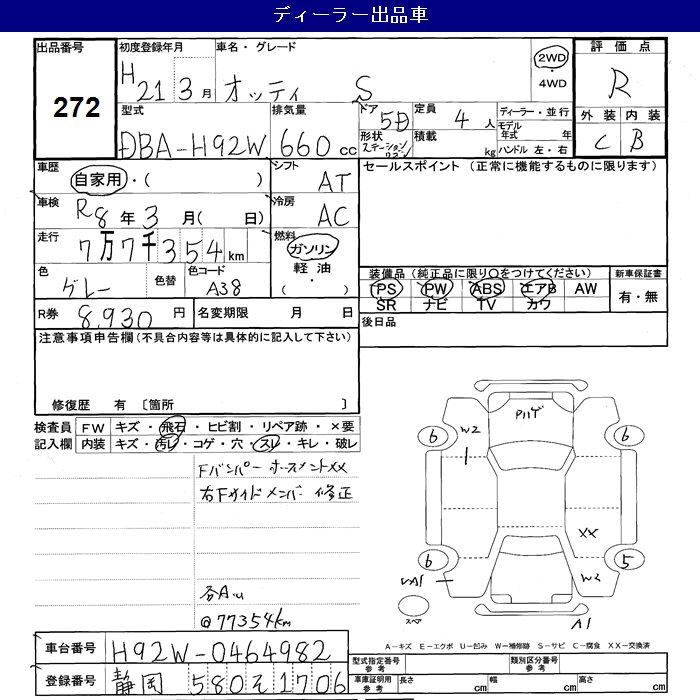 ディーラー出品車
出品番号 初度登録年月 車名・グレード 2WD ・ 4WD 評価点
272 H21 3月 オッティ S R
型式 排気量 ドア 定員 ディーラー・並行 外装 内装
DBA-H92W 660cc 5D 4人 モデル年式 年 C B
形状 ステーションワゴン 積載 kg ハンドル 左・右
車歴 自家用・( ) シフト AT セールスポイント (正常に機能するものに限ります)
車検 R8年3月( 日) 冷房 AC
走行 7万7千354km 燃料 ガソリン 軽油 ・( )
色 グレー 色替 色コード A38 装備品 (純正品に限り○をつけてください) 新車保証書
PS PW ABS エアB AW 有・無
SR ナビ TV カワ
R券 8,930円 名変期限 月 日 後日品
注意事項申告欄(不具合内容等は具体的に記入して下さい)
修復歴 有 〔箇所 〕
検査員 FW キズ・飛石・ヒビ割・リペア跡・×要
記入欄 内装 キズ・汚レ・コゲ・穴・スレ・キレ・破レ
Fバンパー ホースメントXX
右Fサイドメンバー 修正
各Au
@77354km
6 W2 6
XX
6 W2 5
A1
スペア
A-キズ E-エクボ U-凹み W-補修跡 S-サビ C-腐食 XX-交換済
車台番号 H92W-0464982 型式指定番号 参考 類別区分番号 参考
登録番号 静岡 580 そ 1706 車庫証明用 参考 長さ cm 幅 cm 高さ cm